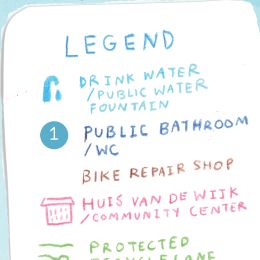 LEGEND
DRINK WATER
/PUBLIC WATER
FOUNTAIN
1 PUBLIC BATHROOM
/WC
BIKE REPAIR SHOP
HUIS VAN DE WIJK
/COMMUNITY CENTER
PROTECTED